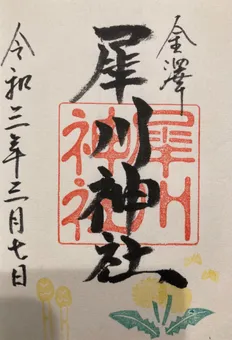 金澤
犀川神社
犀川神社
令和三年三月七日